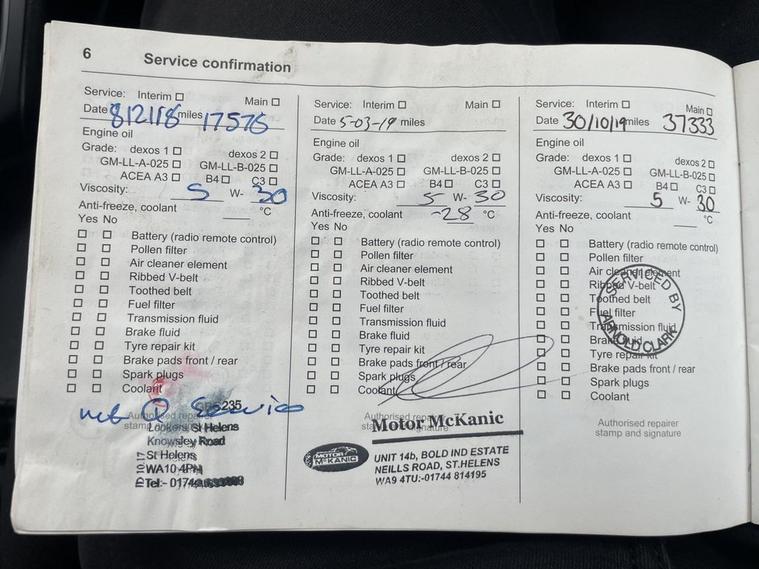 6 Service confirmation
Service: Interim ☐ Main ☐
Date 8/2/18 miles 17576
Engine oil
Grade: dexos 1 ☐ dexos 2 ☐
GM-LL-A-025 ☐ GM-LL-B-025 ☐
ACEA A3 ☐ B4 ☐ C3 ☐
Viscosity: 5 W- 30
Anti-freeze, coolant ___ °C
Yes No
☐ ☐ Battery (radio remote control)
☐ ☐ Pollen filter
☐ ☐ Air cleaner element
☐ ☐ Ribbed V-belt
☐ ☐ Toothed belt
☐ ☐ Fuel filter
☐ ☐ Transmission fluid
☐ ☐ Brake fluid
☐ ☐ Tyre repair kit
☐ ☐ Brake pads front / rear
☐ ☐ Spark plugs
☐ ☐ Coolant
235
Authorised repairer
stamp
Lookers St Helens
Knowsley Road
St Helens
WA10 4PH
Tel:- 01744
Service: Interim ☐ Main ☐
Date 5-03-19 miles
Engine oil
Grade: dexos 1 ☐ dexos 2 ☐
GM-LL-A-025 ☐ GM-LL-B-025 ☐
ACEA A3 ☐ B4 ☐ C3 ☐
Viscosity: 5 W- 30
Anti-freeze, coolant -28 °C
Yes No
☐ ☐ Battery (radio remote control)
☐ ☐ Pollen filter
☐ ☐ Air cleaner element
☐ ☐ Ribbed V-belt
☐ ☐ Toothed belt
☐ ☐ Fuel filter
☐ ☐ Transmission fluid
☐ ☐ Brake fluid
☐ ☐ Tyre repair kit
☐ ☐ Brake pads front / rear
☐ ☐ Spark plugs
☐ ☐ Coolant
Authorised repairer
stamp and signature
Motor McKanic
MOTOR
McKANIC
UNIT 14b, BOLD IND ESTATE
NEILLS ROAD, ST.HELENS
WA9 4TU:-01744 814195
Service: Interim ☐ Main ☐
Date 30/10/19 miles 37333
Engine oil
Grade: dexos 1 ☐ dexos 2 ☐
GM-LL-A-025 ☐ GM-LL-B-025 ☐
ACEA A3 ☐ B4 ☐ C3 ☐
Viscosity: 5 W- 30
Anti-freeze, coolant ___ °C
Yes No
☐ ☐ Battery (radio remote control)
☐ ☐ Pollen filter
☐ ☐ Air cleaner element
☐ ☐ Ribbed V-belt
☐ ☐ Toothed belt
☐ ☐ Fuel filter
☐ ☐ Transmission fluid
☐ ☐ Brake fluid
☐ ☐ Tyre repair kit
☐ ☐ Brake pads front / rear
☐ ☐ Spark plugs
☐ ☐ Coolant
SERVICED BY
ARNOLD CLARK
Authorised repairer
stamp and signature